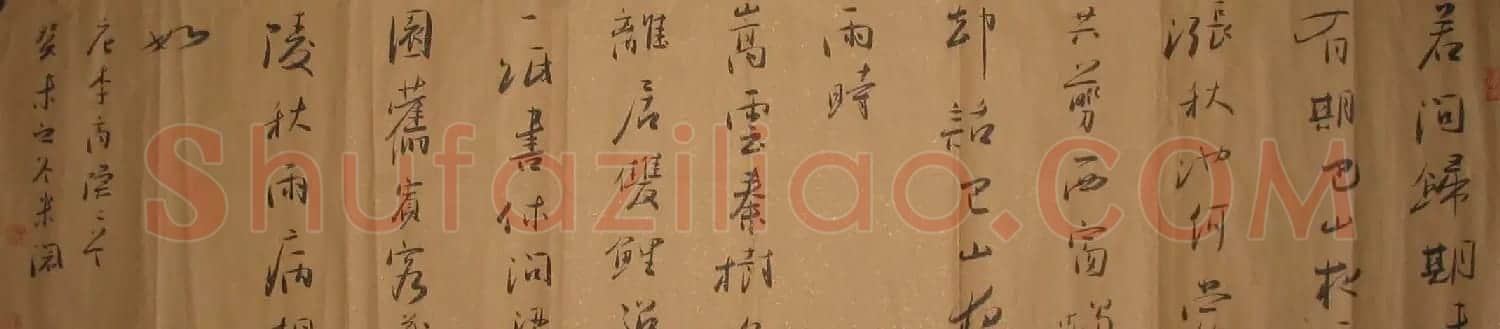 君问歸期
有期巴山夜
漲秋池何當
共剪西窗
却話巴山夜
雨時
嵩雲秦樹
離居雙鯉迢
一紙書休问梁
園舊賓客茂
陵秋雨病相
如
唐李商隱二首
癸未之冬米
Shufaziliao.COM